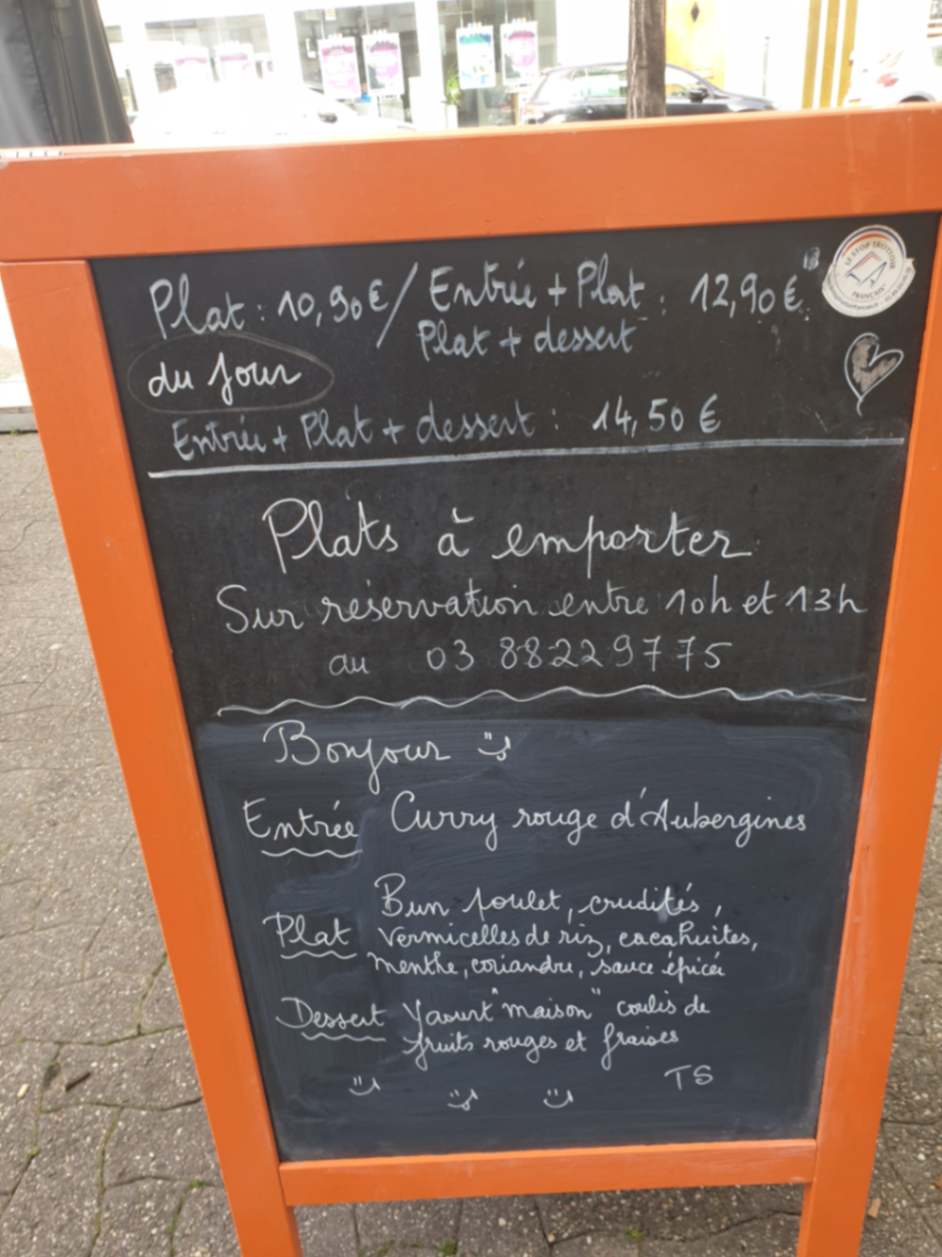 Plat : 10,90€ / Entrée + Plat : 12,90€
Plat + dessert
du jour
Entrée + Plat + dessert : 14,50 €
Plats à emporter
Sur réservation entre 10h et 13h
au 03 88229775
Bonjour
Entrée Curry rouge d'Aubergines
Bun poulet, crudités,
Plat vermicelles de riz, cacahuites,
menthe, coriandre, sauce épicée
Dessert Yaourt "maison" coulis de
fruits rouges et fraises
TS
LE STOP TROTTOIR
FRANÇAIS